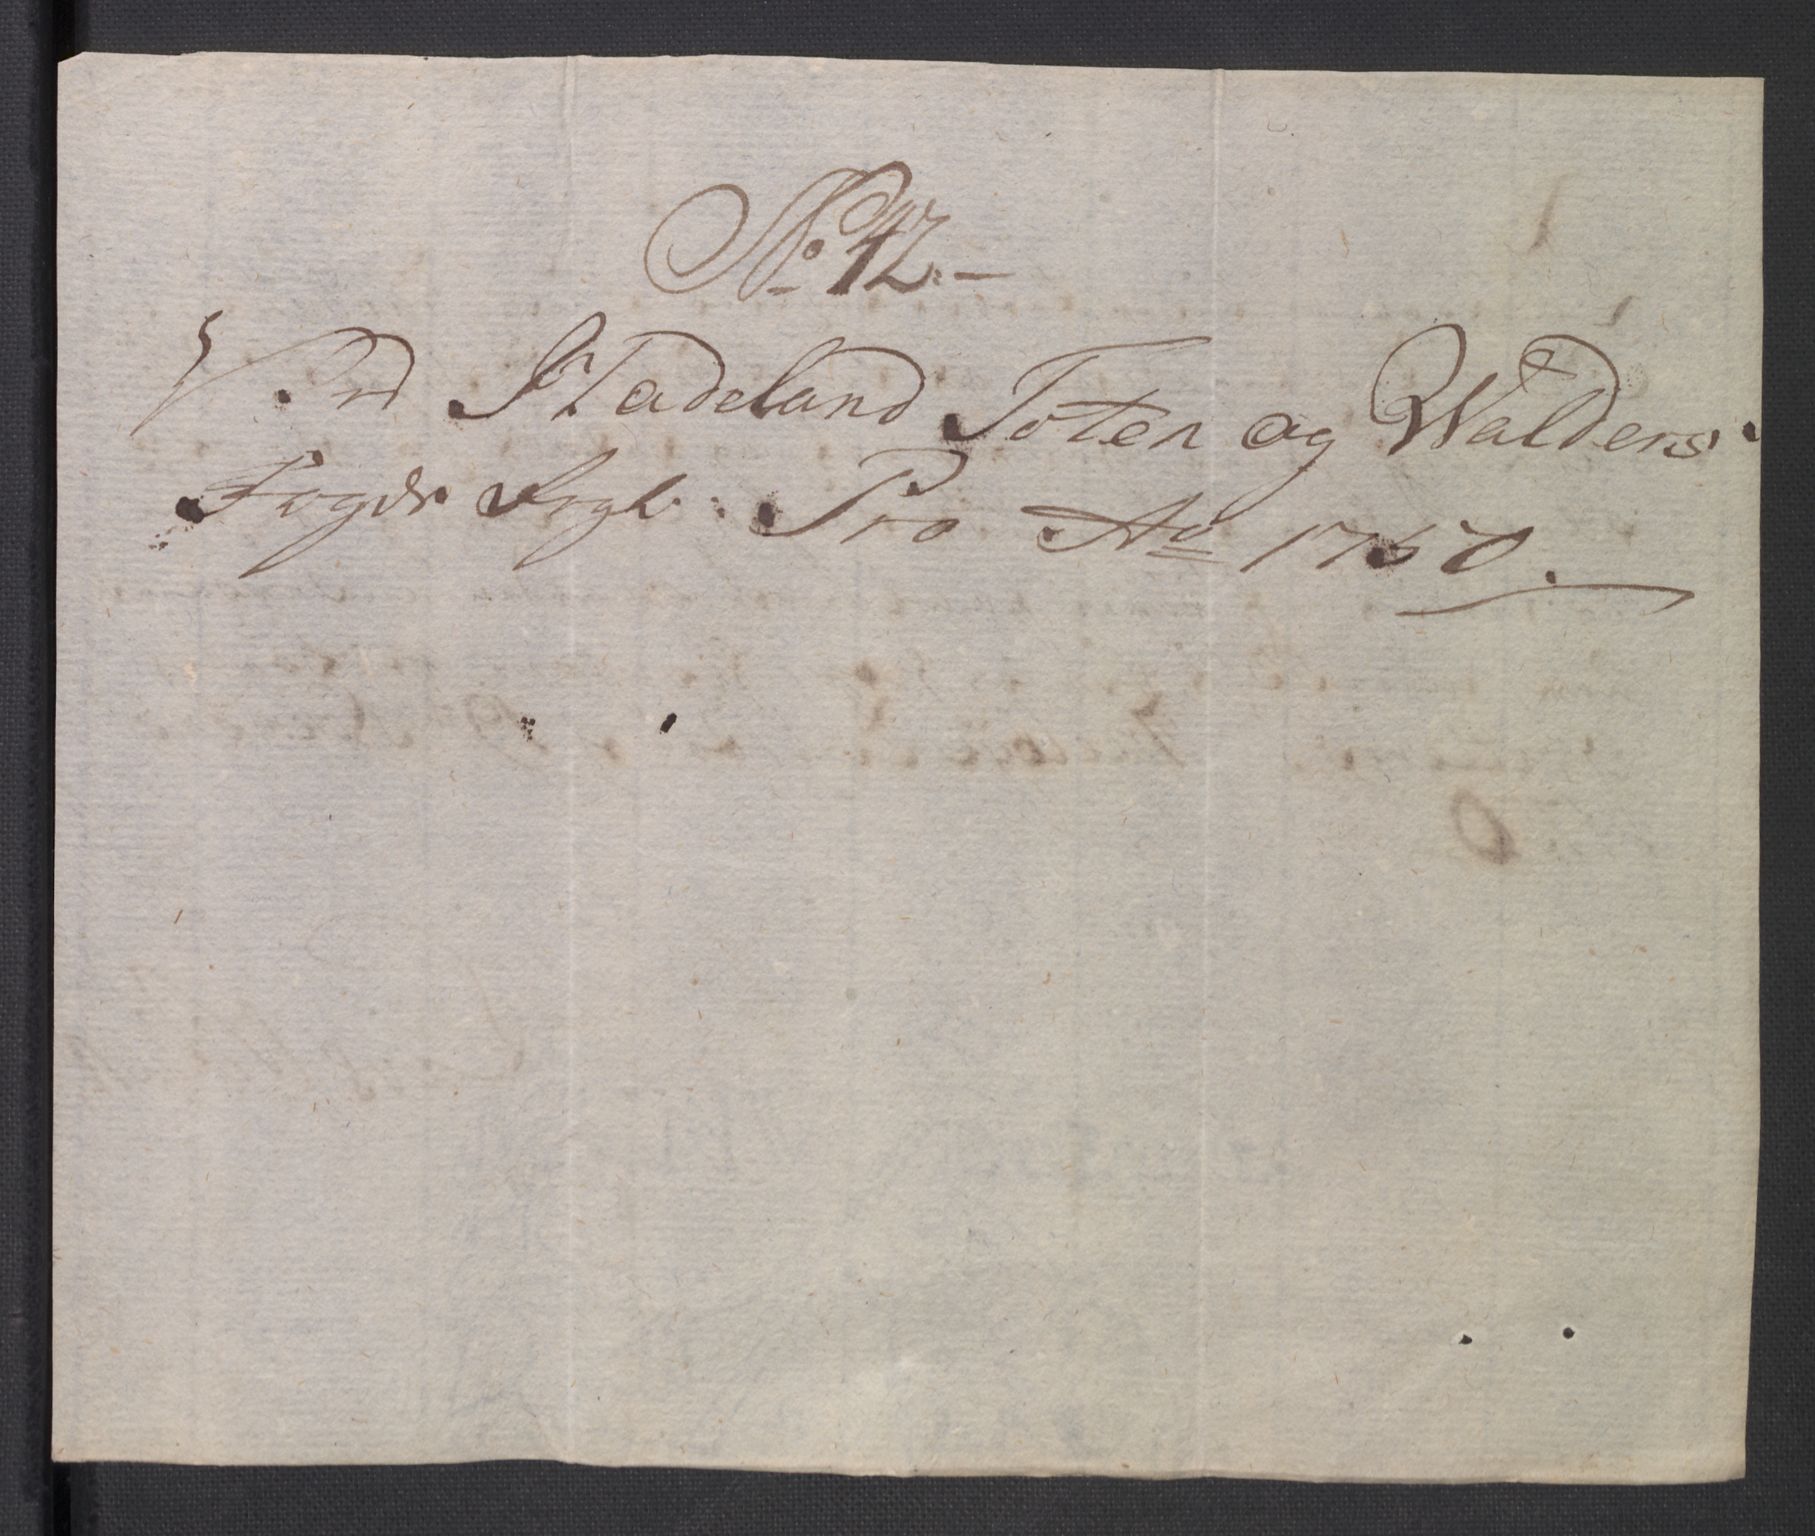 No. 42.
Ved Hadeland Toten og Walders
Fogds Regl: Pro Ao 1757.